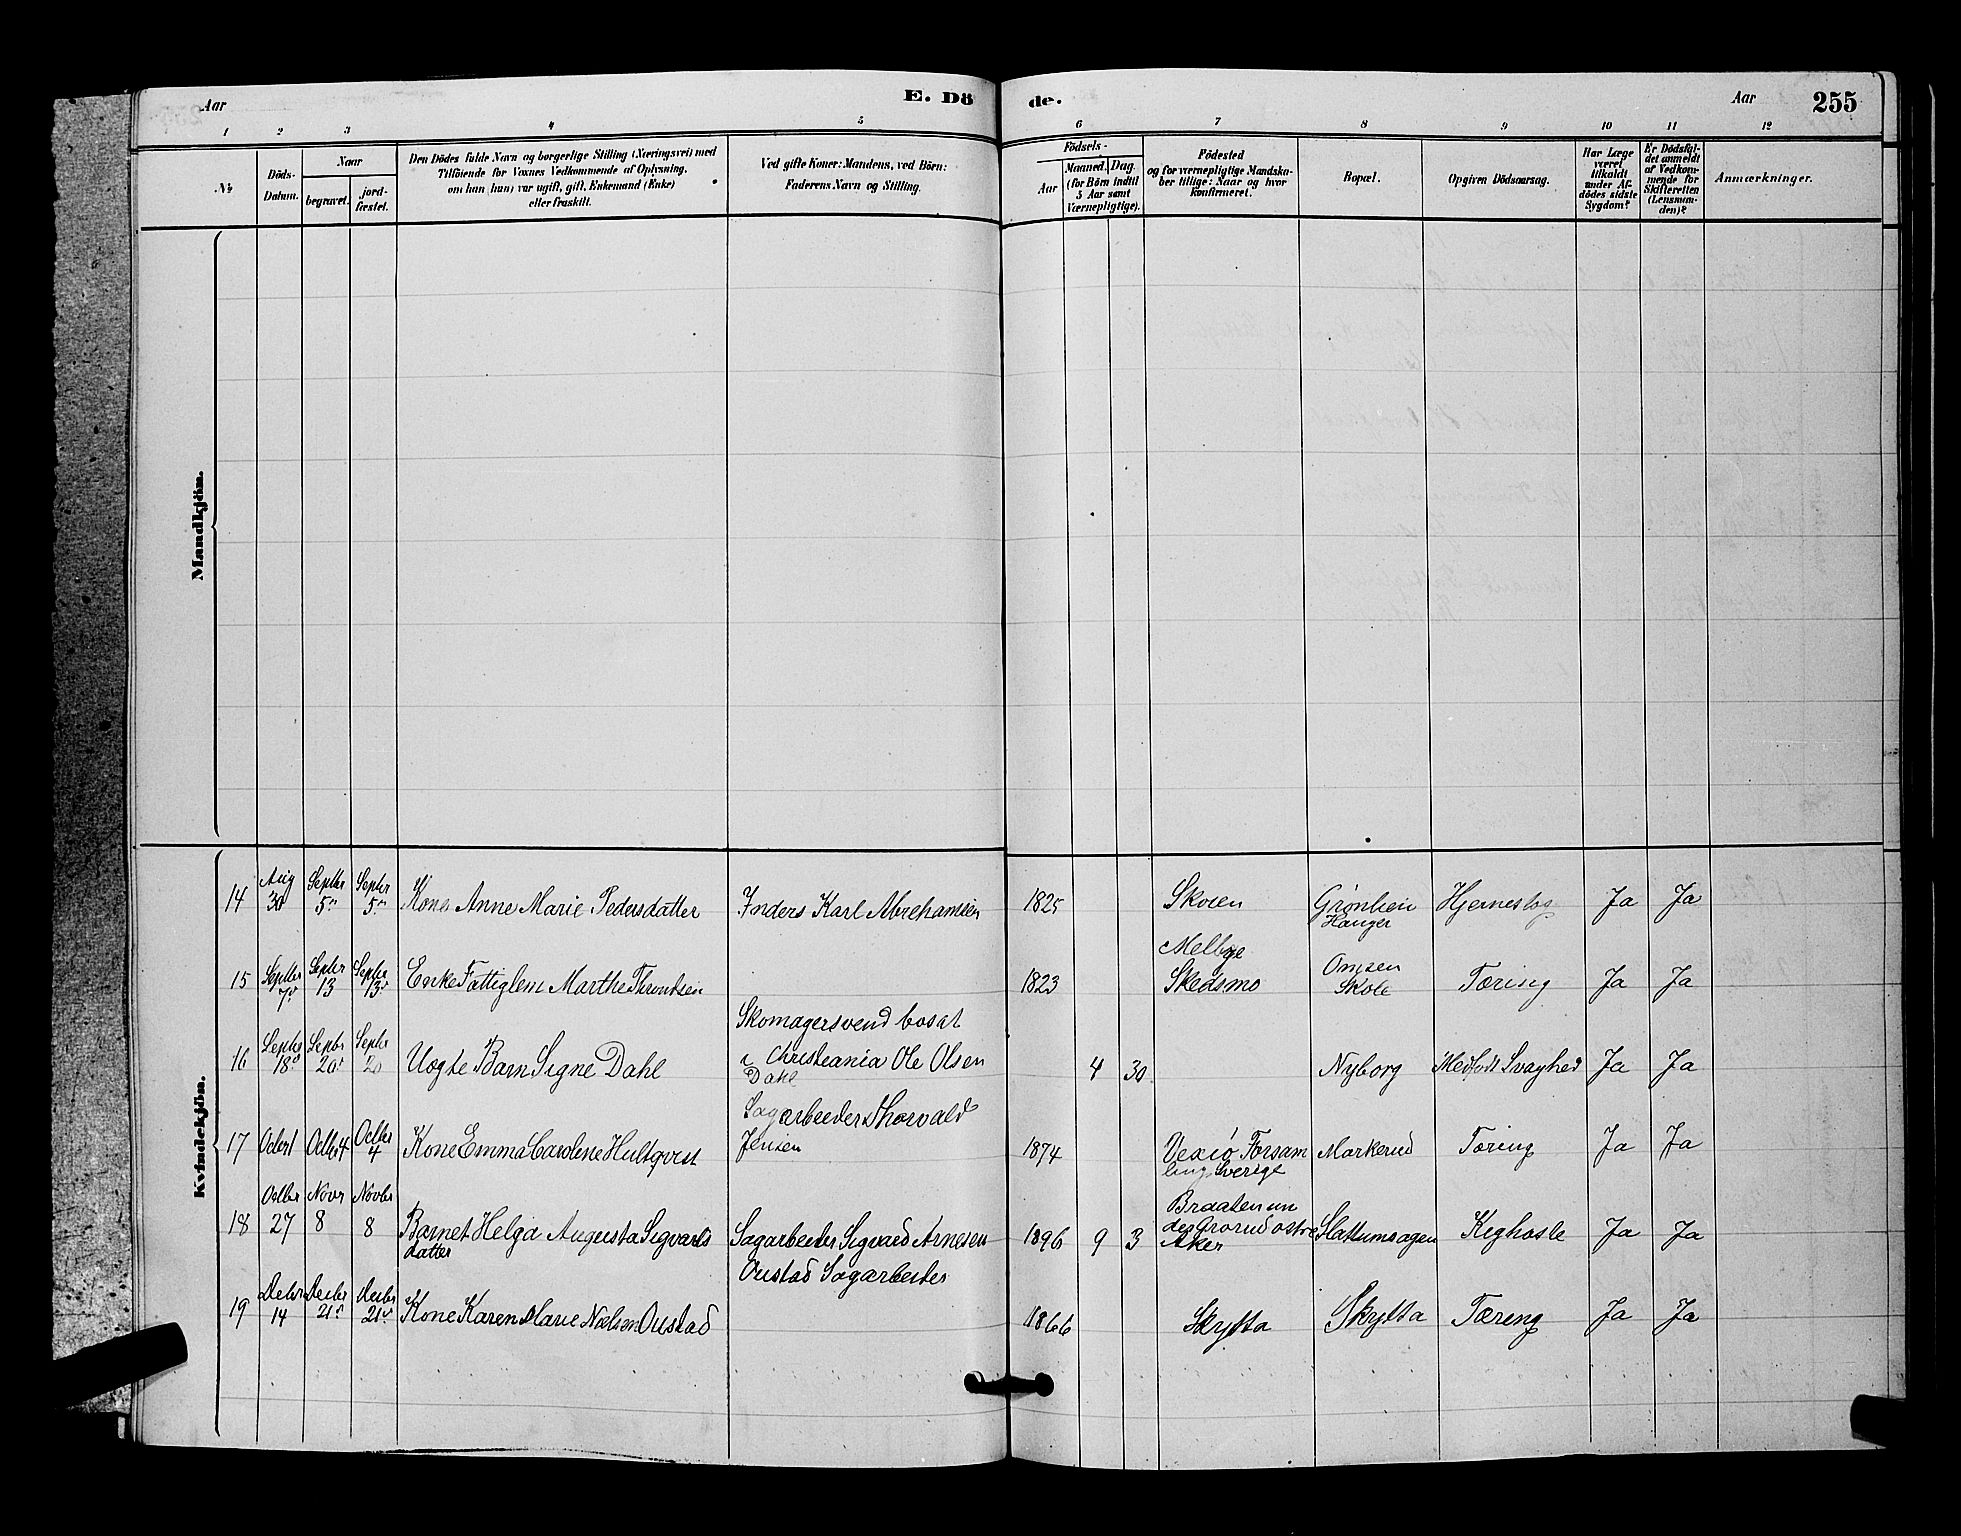 Aar
E. Dö
de.
Aar
255
1 2 3 4 5 6 7 8 9 10 11 12
№
Döds-
Datum.
Naar
begravet.
jord-
fæstet.
Den Dödes fulde Navn og borgerlige Stilling (Næringsvei) med
Tilföiende for Voxnes Vedkommende af Oplysning,
om han (hun) var ugift, gift, Enkemand (Enke)
eller fraskilt.
Ved gifte Koner: Mandens, ved Börn:
Faderens Navn og Stilling.
Födsels-
Aar
Maaned. Dag.
(for Börn indtil
5 Aar samt
Værnepligtige).
Födested
og for værnepligtige Mandska-
ber tillige: Naar og hvor
konfirmeret.
Bopæl.
Opgiven Dödsaarsag.
Har Læge
været
tilkaldt
under Af-
dödes sidste
Sygdom?
Er Dödsfal-
det anmeldt
af Vedkom-
mende for
Skifteretten
(Lensman-
den)?
Anmærkninger.
Mandkjön.
Kvindekjön.
14 Aug 30 Septbr 5 Septbr 5 Kone Anne Marie Pedersdatter Karl Abrehamsen 1825 Skoien Grønlien Hanger Ja Ja
15 Septbr 7 Septbr 13 Septbr 13 Enke Fattiglem Marthe Throndsen 1823 Melbye
Skedsmo Skole Tæring Ja Ja
16 Septbr 18 Septbr 20 Septbr 20 Uægte Barn Signe Dahl Skomagersvend bosat
i Christeania Ole Olsen
Dahl 4 30 Nyborg Medfødt Svaghed Ja Ja
17 Octbr 1 Octbr 4 Octbr 4 Kone Emma Carolene Hultqvist Sagarbeider Thorvald
Jensen 1874 Vexiø Forsam
ling Sverige Markerud Tæring Ja Ja
18 Octbr 27 Novr 8 Novbr 8 Barnet Helga Augusta Sigvards
datter Sagarbeider Sigvard Arnesen 1896 9 3 Braaten un
der Grorud østre
Aker Slattumsagen Kighoste Ja Ja
19 Debr 14 Decbr 21 Decbr 21 Kone Karen Marie Nælsen Onstad Onstad Sagarbeider 1866 Skytta Skytta Tæreng Ja Ja